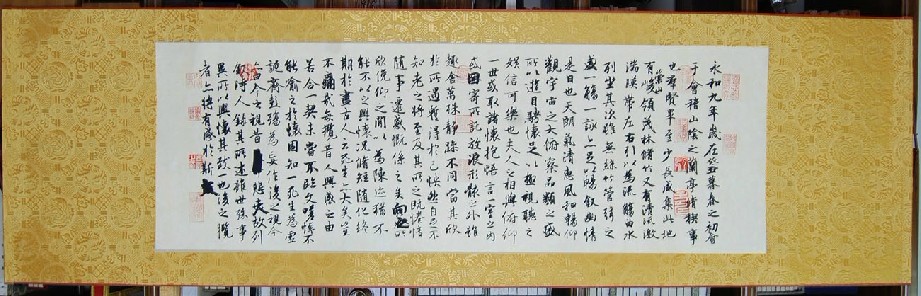 永和九年歲在癸丑暮春之初會
于會稽山陰之蘭亭脩禊事
也群賢畢至少長咸集此地
有崇山峻領茂林脩竹又有清流激
湍暎帶左右引以為流觴曲水
列坐其次雖無絲竹管弦之
盛一觴一詠亦足以暢敘幽情
是日也天朗氣清惠風和暢仰
觀宇宙之大俯察品類之盛
所以遊目騁懷足以極視聽之
娛信可樂也夫人之相與俯仰
一世或取諸懷抱悟言一室之內
或因寄所託放浪形骸之外雖
趣舍萬殊靜躁不同當其欣
於所遇蹔得於己怏然自足不
知老之將至及其所之既惓情
隨事遷感慨係之矣向之所
欣俛仰之閒以為陳跡猶不
能不以之興懷況脩短隨化終
期於盡古人云死生亦大矣豈
不痛哉每攬昔人興感之由
若合一契未嘗不臨文嗟悼不
能喻之於懷固知一死生為虛
誕齊彭殤為妄作後之視今
由今之視昔悲夫故列
敘時人錄其所述雖世殊事
異所以興懷其致一也後之攬
者亦將有感於斯文